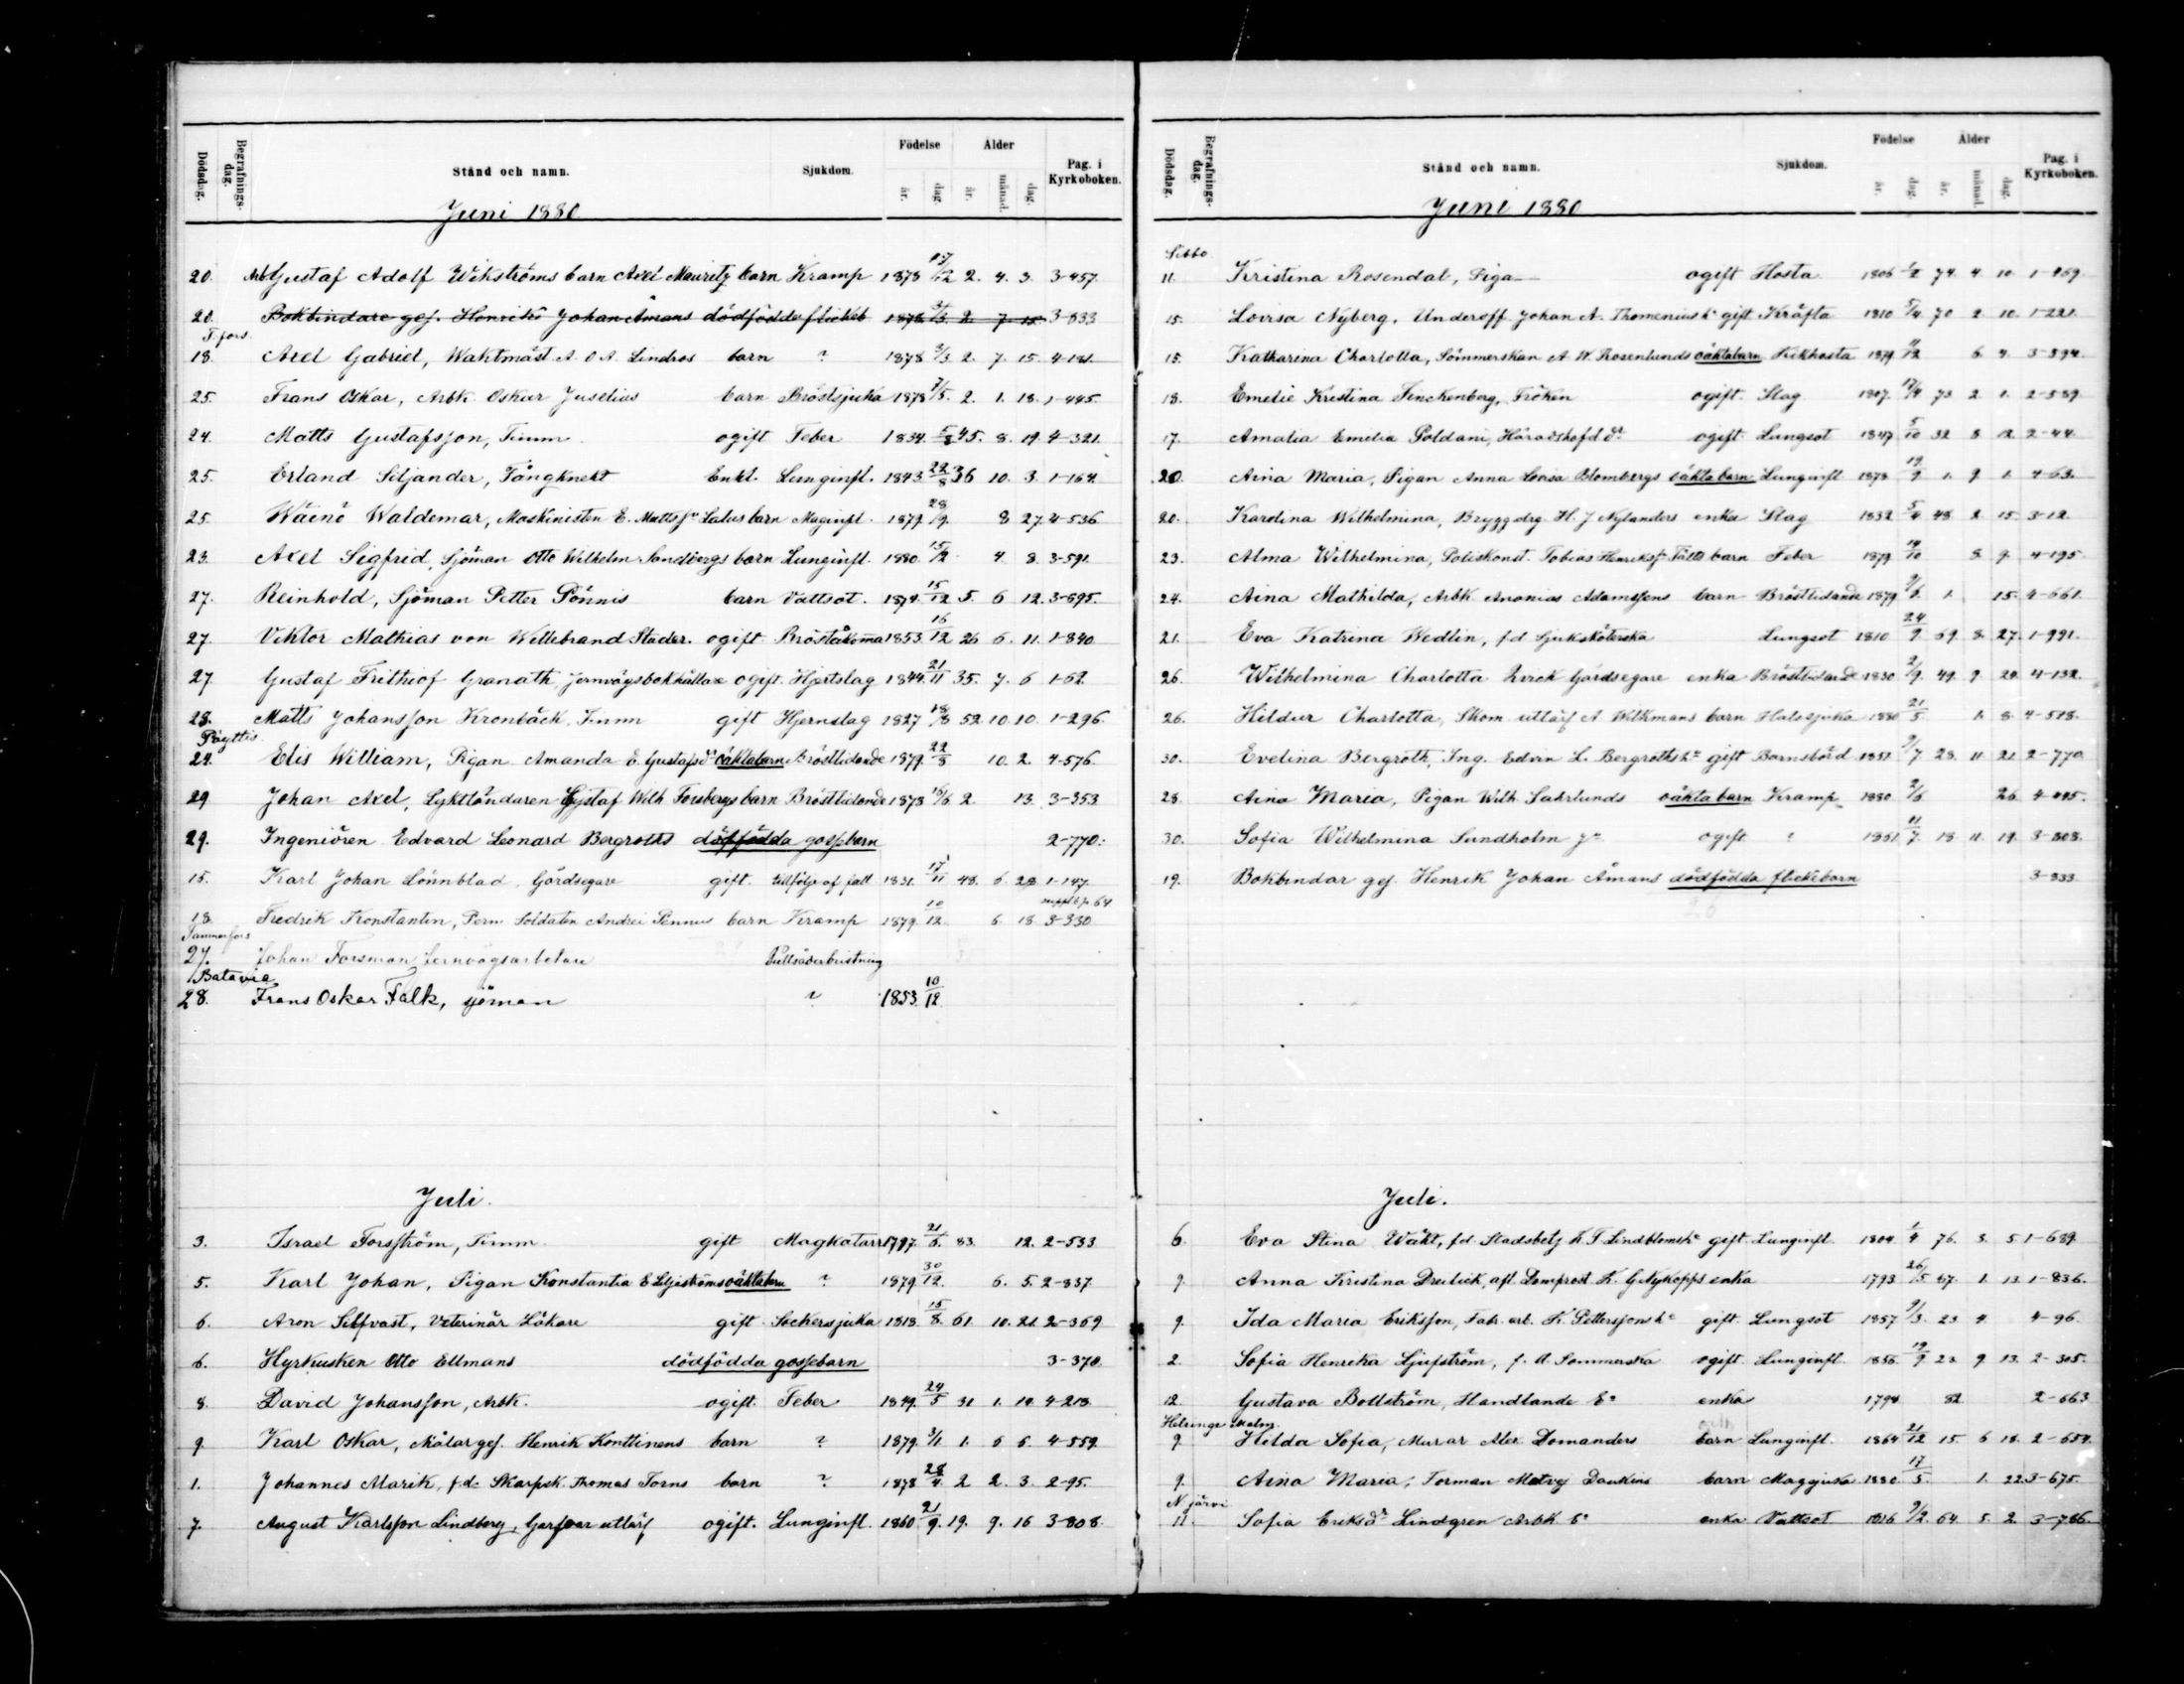 Dödsdag. Begrafnings-dag. Stånd och namn. Sjukdom. Födelse år. dag. Ålder år. månad. dag. Pag. i Kyrkoboken.
Juni 1880
20. Arb. Gustaf Adolf Wikströms barn Axel Mauritz barn Kramp 1878 17/12 2. 4. 3. 3-457.
20. Bokbindare ges. Henriks Johan Åmans dödfödda flickeb 1878 3/3 2. 7. 15. 3-833
T.fors.
18. Axel Gabriel, Waktmäst. A. O A. Lindros barn ? 1878 3/3 2. 7. 15. 4-181.
25. Frans Oskar, Arbk. Oskar Juselius barn Bröstsjuka 1878 7/5. 2. 1. 18. 1-445.
24. Matts Gustafsson, Timm. ogift Feber 1834. 5/8 45. 8. 19. 4-321.
25. Erland Siljander, Fångknekt Enkl. Lunginfl. 1843. 22/8 36 10. 3. 1-164.
25. Wäinö Waldemar, Maskinisten E. Mattss:n Salus barn Maginfl. 1879. 28/9. 8 27. 4-536
23. Axel Sigfrid, Sjöman Otto Wilhelm Sandbergs barn Lunginfl. 1880. 15/2 4. 8. 3-591.
27. Reinhold, Sjöman Petter Pönnis barn Vattsot. 1874. 15/12 5. 6 12. 3-695.
27. Viktor Mathias von Willebrand Studer. ogift Bröståkoma 1853. 16/12 26 6. 11. 1-840
27. Gustaf Frithiof Granath, Jernvägsbokhållare ogift. Hjertslag 1844. 21/11 35. 7. 6 1-62.
28. Matts Johansson Kronbäck, Timm gift Hjernslag 1827 18/8 52. 10. 10. 1-296.
Pöyttis.
24. Elis William, Pigan Amanda E. Gustafsd:r oäktabarn Bröstlidande 1879. 22/8 10. 2. 4-576.
29 Johan Axel, Lykttändaren Gustaf Wilh Forsbergs barn Bröstlidande 1878 16/6 2. 13. 3-353
29. Ingeniören Edvard Leonard Bergroths dödfödda gossebarn 2-770.
15. Karl Johan Lönnblad, Gårdsegare gift. tillfölje af fall 1831. 17/11 48. 6. 28 1-147.
18. Fredrik Konstantin, Perm Soldaten Andrei Pennus barn Kramp 1879. 10/12. 6. 18. 3-330
Tammerfors
27. Johan Forsman Jernvägsarbetare Pulsåderbristning
Batavia
28. Frans Oskar Falk, sjöman ? 1853. 10/12
Juli.
3. Israel Forsström, Timm. gift Magkatarr 1797. 21/6. 83. 12. 2-533
5. Karl Johan, Pigan Konstantia E Liljeströms oäktabarn ? 1879. 30/12. 6. 5. 2-837.
6. Aron Selfvast, Veterinär Läkare gift. Sockersjuka 1818. 15/8. 61. 10. 21. 2-369
6. Hyrkusken Otto Ellmans dödfödda gossebarn 3-370
8. David Johansson, Arbk. ogift. Feber 1849. 24/5 31 1. 14. 4-213.
9. Karl Oskar, Målar ges. Henrik Konttinens barn ? 1879. 3/1 1. 6 6. 4-559.
1. Johannes Marik, f.d. Skarpsk. Thomas Torns barn ? 1878 28/4. 2 2. 3. 2-95.
7. August Karlsson Lindberg, Garfvar utlärl ogift. Lunginfl. 1860 21/9. 19. 9. 16 3-808.
Dödsdag. Begrafnings-dag. Stånd och namn. Sjukdom. Födelse år. dag. Ålder år. månad. dag. Pag. i Kyrkoboken.
Juni 1880
Sibbo
11. Kristina Rosendal, Piga ogift Hosta 1806 1/2 74. 4. 10. 1-969.
15. Lovisa Nyberg, Underoff Johan A. Thomenius h:u gift Kräfta 1810 5/4. 70 2. 10. 1-221.
15. Katharina Charlotta, Sömmerskan A. W. Rosenlunds oäktabarn Kikhosta 1879. 11/12 6. 4. 3-594.
18. Emelie Kristina Finckenberg, Fröken ogift. Slag 1807. 17/4. 73 2. 1. 2-589.
17. Amalia Emelia Poldani, Häradshöfd d:r ogift Lungsot 1847 5/10 32 8 12. 2-44.
20. Aina Maria, Pigan Anna Lovisa Blombergs oäkta barn Lunginfl. 1878 19/9 1. 9. 1. 4-63.
20. Karolina Wilhelmina, Bryggdrg. H. J Nylanders enka Slag 1832 5/4 48. 2. 15. 3-12.
23. Alma Wilhelmina, Poliskonst. Tobias Henrikss Fälts barn Feber 1879 14/10 8 9. 4-195.
24. Aina Mathilda, Arbk. Ananias Adamssons barn Bröstlidande 1879 9/6. 1. 15. 4-661.
21. Eva Katrina Wedlin, f.d Sjuksköterska Lungsot 1810 24/9. 69. 8. 27. 1-991.
26. Wilhelmina Charlotta Zvick Gårdsegare enka Bröstlidande 1830 2/9. 49. 9. 24. 4-132.
26. Hildur Charlotta, Skom. utlärl A. Wilkmans barn Halssjuka 1880 21/5. 1. 8. 4-518.
30. Evelina Bergroth, Ing. Edvin L. Bergroths h:u gift Barnsbörd 1851 9/7 28. 11. 21. 2-770.
28. Aina Maria, Pigan Wilh. Sahrlunds oäkta barn Kramp 1880 2/6 26. 4-495.
30. Sofia Wilhelmina Sundholm J:n ogift ? 1861. 11/7. 18 11. 19. 3-808.
19. Bokbindar ges. Henrik Johan Åmans dödfödda flickebarn 3-833.
Juli.
6. Eva Stina Wäkt, f.d. Stadsbetj K F Lindbloms h:u gift Lunginfl. 1804. 1/4 76. 3. 5. 1-689.
9. Anna Kristina Dreilick, afl. Domprost. K. G. Nykopps enka 1793 26/5 87. 1. 13. 1-836.
9. Ida Maria Eriksson, Fabr. arb. K. Petterssons h:u gift. Lungsot 1857. 9/3. 23 4. 4-96.
2. Sofia Henrika Ljufström, f. d. Sömmerska ogift Lunginfl. 1856. 19/9. 23. 9. 13. 2-305.
12. Gustava Bollström, Handlande E:a enka 1794 82 2-663
Helsinge Malm.
9. Hilda Sofia, Murar Alex. Domanders barn Lunginfl. 1864 21/12 15. 6 18. 2-654.
9. Aina Maria, Forman Matvej Daukins barn Magsjuka 1880. 17/5. 1. 22. 3-675.
N. järvi
11. Sofia Eriksd:r Lindgren Arbk. E:a enka Vattsot 1816 9/2. 64. 5. 2. 3-786.